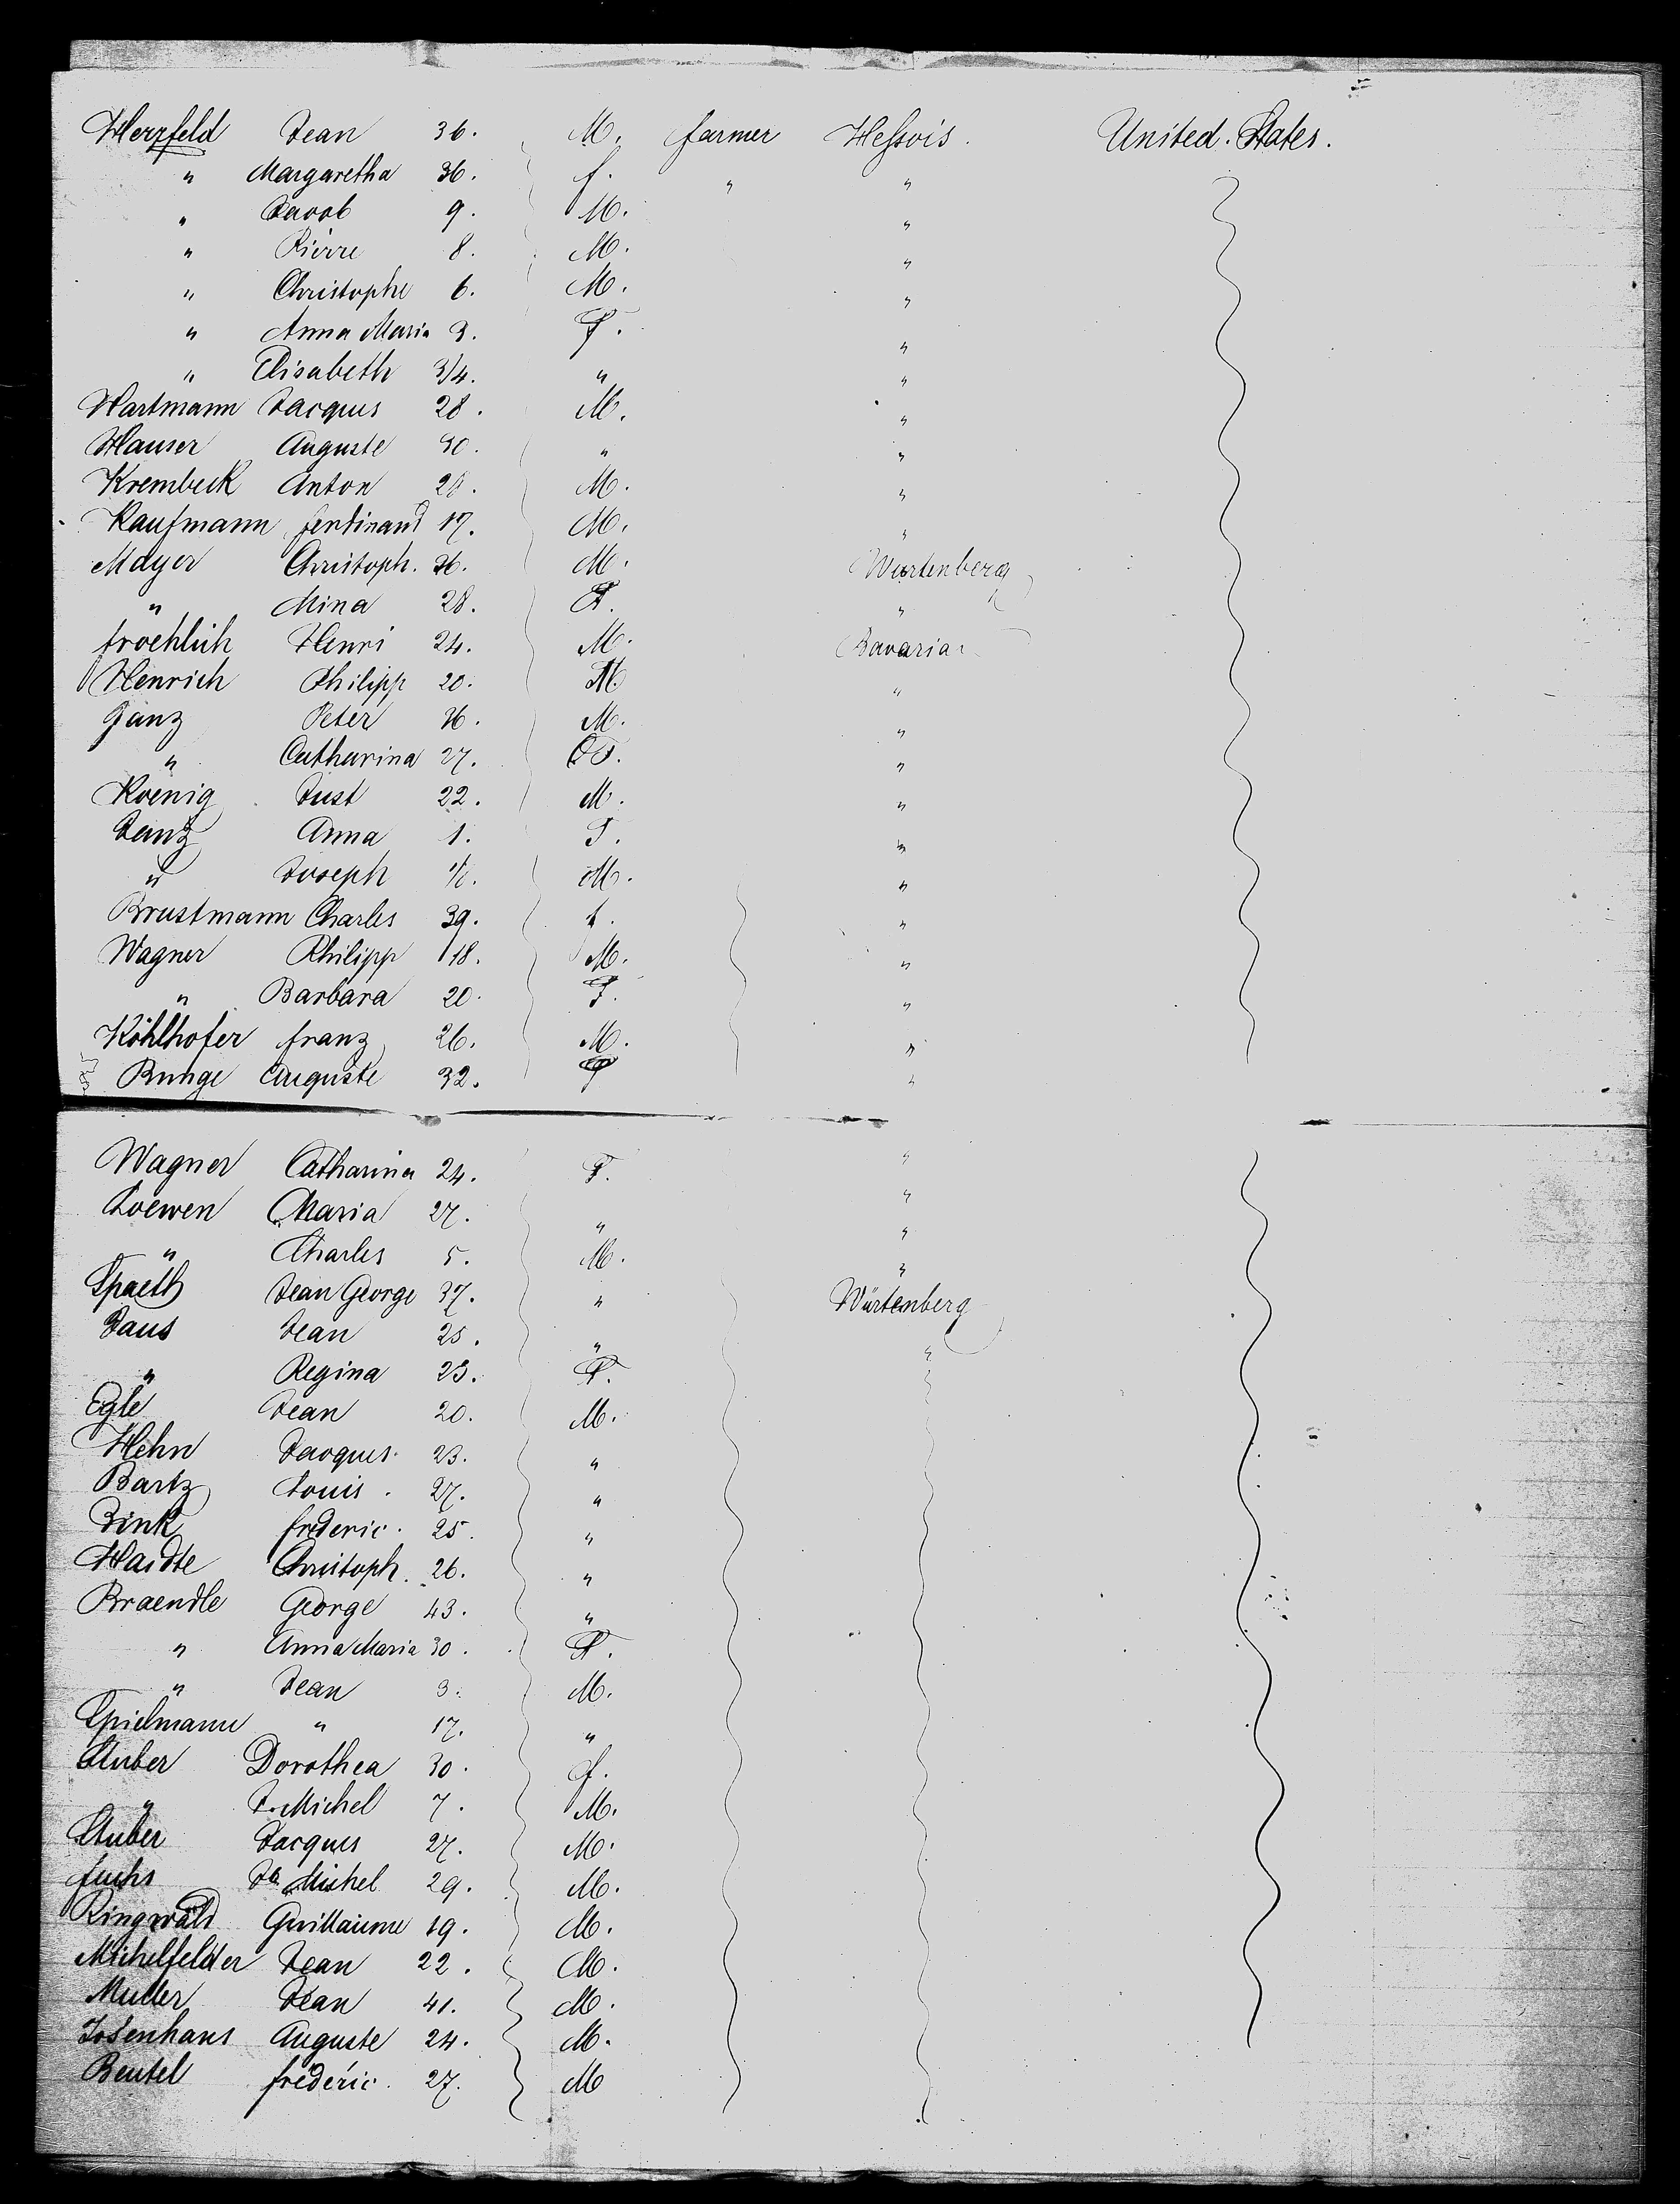 Herrfeld Jean 36. M. farmer Hessois. United. States.
" Margaretha 36. f. " "
" Jacob 9. M. "
" Pierre 8. M. "
" Christophe 6. M. "
" Anna Maria 3. F. "
" Elisabeth 3/4. " "
Hartmann Jacques 28. M. "
Hauser Auguste 30. " "
Krembeck Anton 28. M. "
Kaufmann ferdinand 17. M. "
Mayer Christoph. 36. M. Wurtenberg
" Mina 28. F. "
froehlich Henri 24. M. Bavaria
Henrich Philipp 20. M. "
Ganz Peter 36. M. "
" Catharina 27. F. "
Koenig Just 22. M. "
Janz Anna 1. F. "
" Joseph M. "
Brustmann Charles 39. "
Wagner Philipp 18. M. "
" Barbara 20. F. "
Köhlhofer franz 26. M. "
Runge Auguste 32. "
Wagner Catharina 24. F. "
Loewen Maria 27. " "
" Charles 5. M. "
Spaeth Jean George 37. " Würtenberg
Jaus Jean 25. " "
" Regina 23. F.
Egle Jean 20. M.
Hehn Jacques. 23. "
Bartz Louis. 27. "
Zink frederic. 25. "
Haidte Christoph. 26. "
Braendle George 43. "
" Anna Maria 30. F.
" Jean 3. M.
Spielmann " 17. "
Stuber Dorothea 30. f.
" J. Michel 7. M.
Stuber Jacques 27. M.
fuchs Michel 29. M.
Ringwald Guillaume 19. M.
Michelfelder Jean 22. M.
Muller Jean 41. M.
Josenhans Auguste 24. M.
Beutel fréderic. 27. M